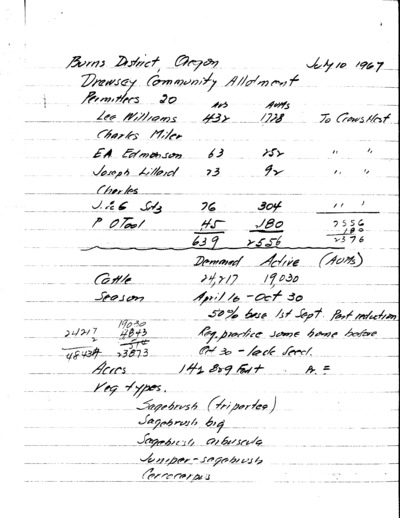 Burns District, Oregon July 10 1967
Drewsey Community Allotment
Permittees 20 AUMs
Lee Williams 432 1728 To Crows Nest
Charles Miler
EA Edmonson 63 252 " "
Joseph Lillard 23 92 " "
Charles
J. & G 76 304 " "
P O Tool 45 180 2556
180
639 2556 2376
Demand Active (AUMs)
Cattle 24,217 19,030
Season April 16 - Oct 30
50% base 1st Sept. Part reduction
19030
24217 4843 Reg. practice some home before
2
48434 23873 Oct 30 - lack feed.
Acres 142 809
Veg types.
Sagebrush (tripartea)
Sagebrush big
Sagebrush arbuscula
Juniper-sagebrush
Cercocarpus